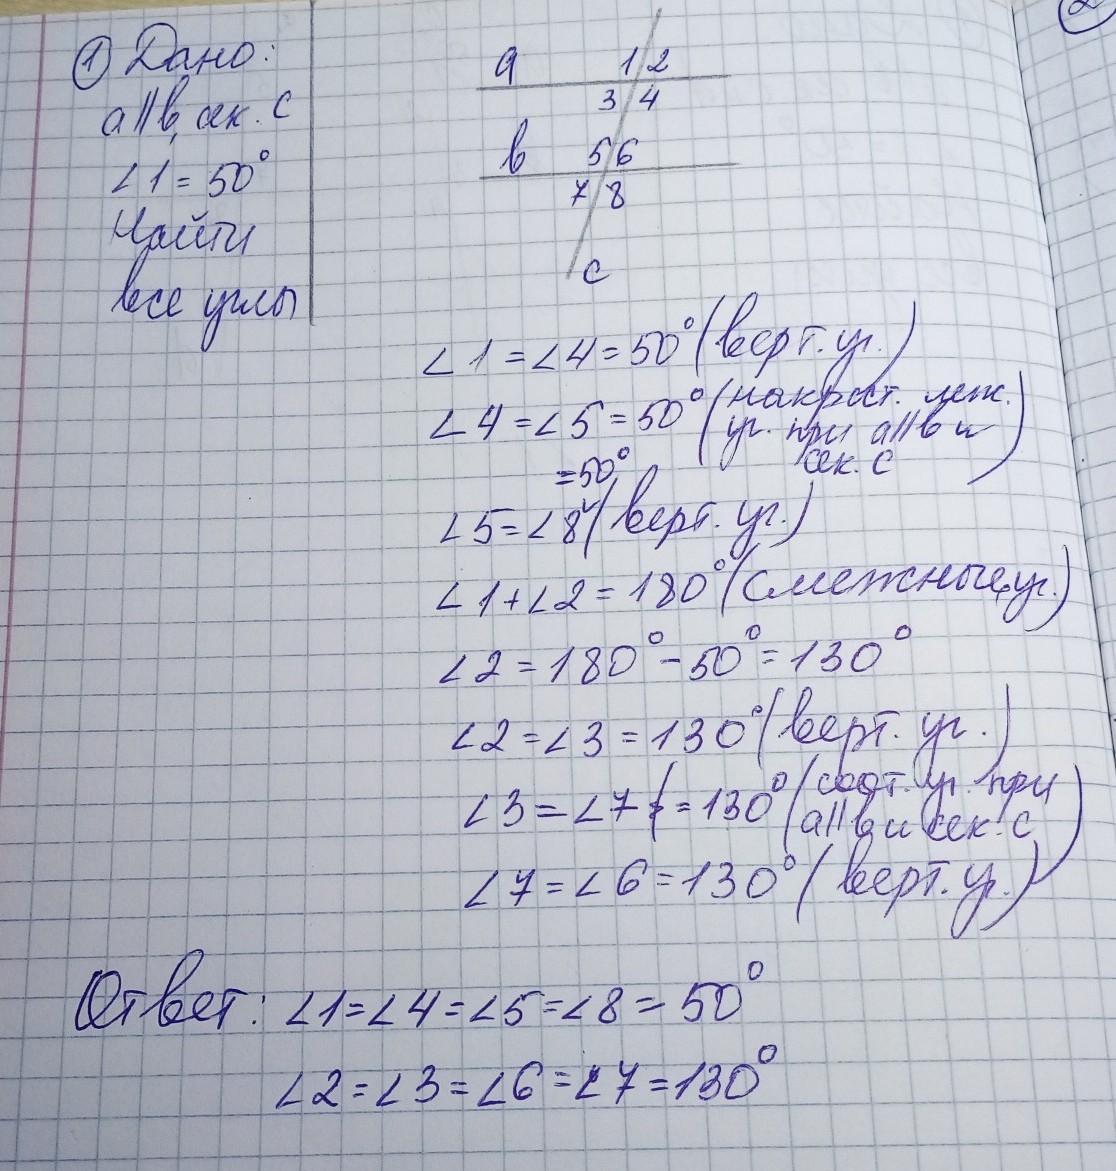 ① Дано:
a∥b, сек. c
∠1 = 50°
Найти
все углы
a 1 2
3 4
b 5 6
7 8
c
∠1 = ∠4 = 50° (верт. уг.)
∠4 = ∠5 = 50° (накрест. леж.
уг. при a∥b и
сек. c)
= 50°
∠5 = ∠8 (верт. уг.)
∠1 + ∠2 = 180° (смежные уг.)
∠2 = 180° - 50° = 130°
∠2 = ∠3 = 130° (верт. уг.)
∠3 = ∠7 = 130° (соот. уг. при
a∥b и сек. c)
∠7 = ∠6 = 130° (верт. уг.)
Ответ: ∠1 = ∠4 = ∠5 = ∠8 = 50°
∠2 = ∠3 = ∠6 = ∠7 = 130°